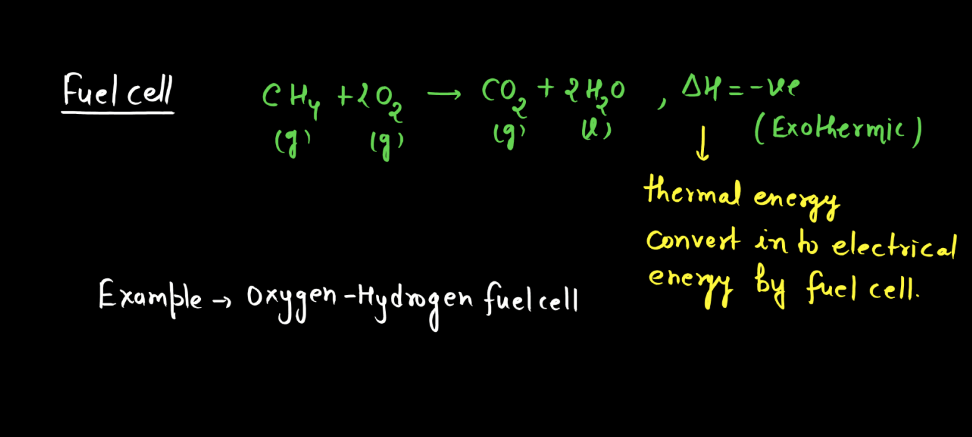 Fuel cell CH4 + 2O2 → CO2 + 2H2O , ΔH = -ve
(g) (g) (g) (l) (Exothermic)
↓
thermal energy
convert in to electrical
energy by fuel cell.
Example → Oxygen-Hydrogen fuel cell